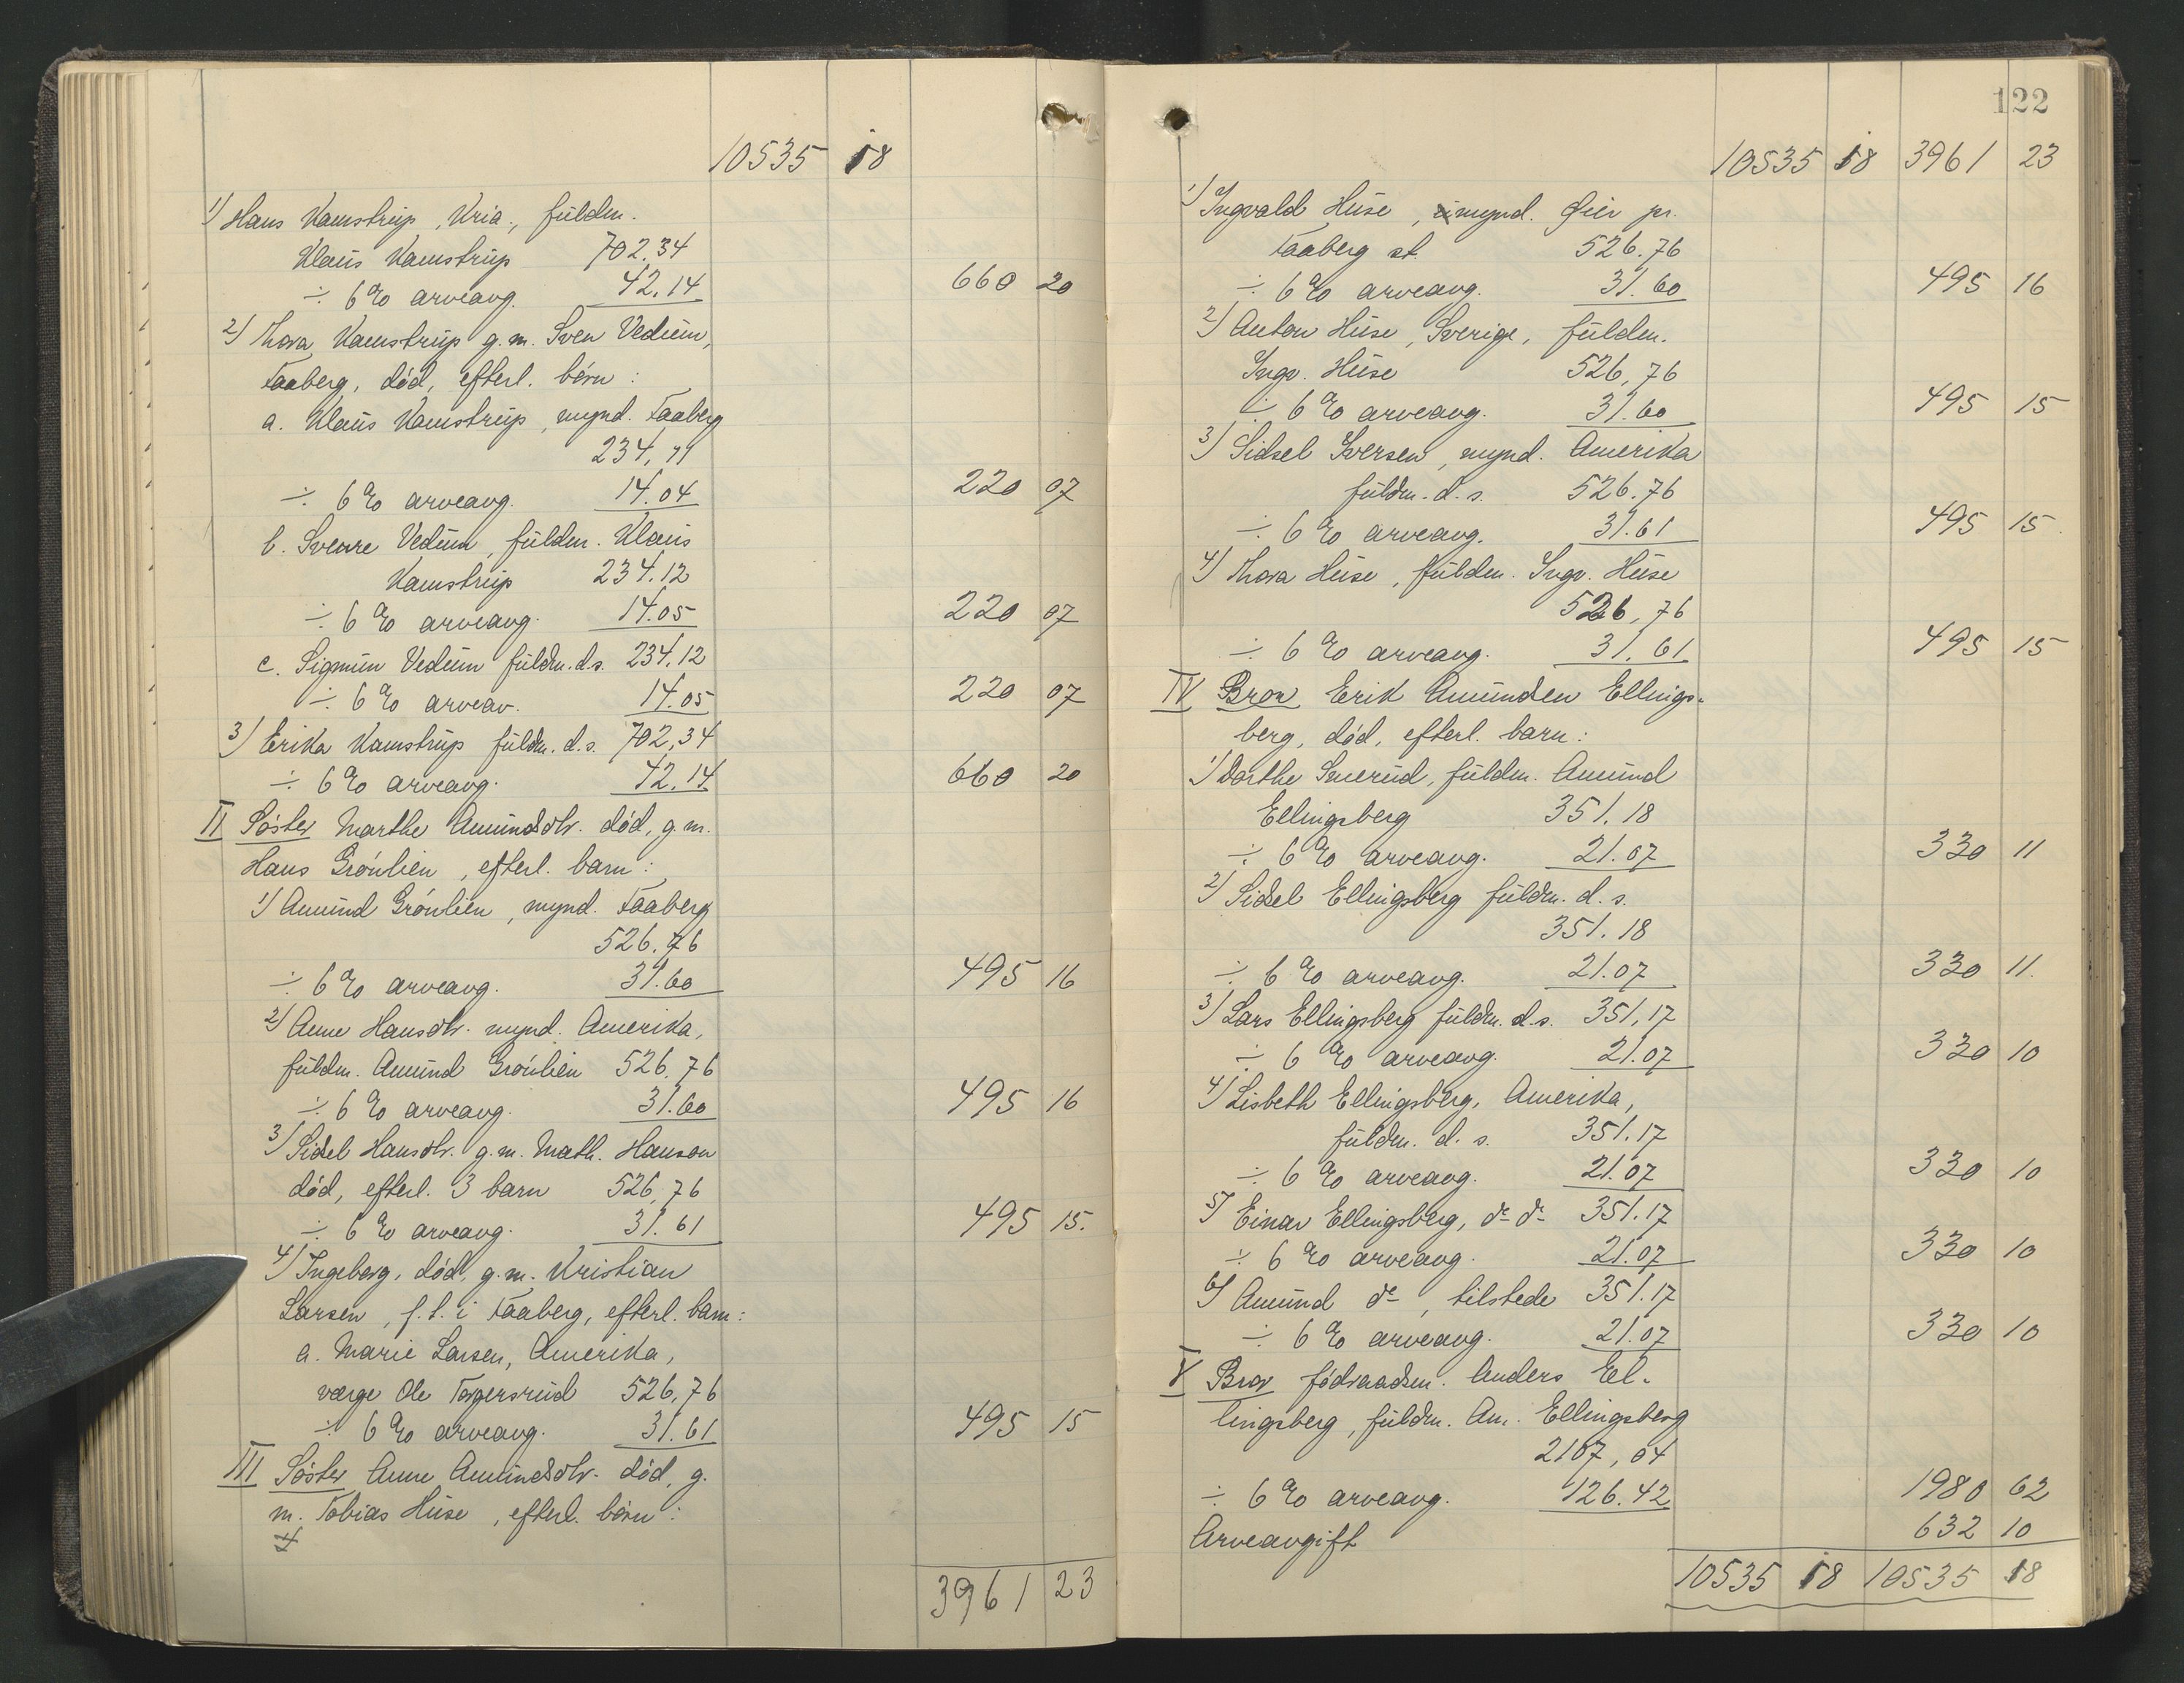 10535 18
1) Hans Kamstrup, Kria., fuldm.
Klaus Kamstrup 702.34
÷ 6 % arveavg. 42.14 660 20
2) Thora Kamstrup g.m. Sven Vedum,
Faaberg, död, efterl. börn:
a. Klaus Kamstrup, mynd. Faaberg
234,11
÷ 6 % arveavg. 14.04 220 07
b. Sverre Vedum, fuldm. Klaus
Kamstrup 234.12
÷ 6 % arveavg. 14.05 220 07
c. Sigmun Vedum fuldm. d.s. 234.12
÷ 6 % arveav. 14.05 220 07
3) Erika Kamstrup fuldm. d.s. 702,34
÷ 6 % arveavg. 42.14 660 20
II Söster Marthe Amundsdtr. död, g.m.
Hans Grönlien, efterl. barn:
1) Amund Grönlien, mynd. Faaberg
526.76
÷ 6 % arveavg. 31.60 495 16
2) Anne Hansdtr. mynd. Amerika,
fuldm. Amund Grönlien 526.76
÷ 6 % arveavg. 31.60 495 16
3) Sidsel Hansdtr. g.m. Math. Hanson
död, efterl. 3 barn 526,76
÷ 6 % arveavg. 31.61 495 15.
4) Ingeborg, död, g.m. Kristian
Larsen, f.t. i Faaberg, efterl. barn:
a. Marie Larsen, Amerika,
værge Ole Torgersrud 526,76
÷ 6 % arveavg. 31.61 495 15
III Söster Anne Amundsdtr. död, g.
m. Tobias Huse, efterl. börn:
3961 23
122
10535 18 3961 23
1) Ingvald Huse, mynd. Öier pr.
Faaberg st. 526.76
÷ 6 % arveavg. 31.60 495 16
2) Anton Huse, Sverige, fuldm.
Ingv. Huse 526,76
÷ 6 % arveavg. 31.60 495 15
3) Sidsel Iversen, mynd. Amerika
fuldm. d.s. 526.76
÷ 6 % arveavg. 31.61 495 15.
4) Thora Huse, fuldm. Ingv. Huse
526,76
÷ 6 % arveavg. 31.61 495 15
IV Bror Erik Amundsen Ellings-
berg, död, efterl. barn:
1) Dorthe Smerud, fuldm. Amund
Ellingsberg 351.18
÷ 6 % arveavg. 21.07 330 11
2) Sidsel Ellingsberg fuldm. d.s.
351.18
÷ 6 % arveavg. 21.07 330 11.
3) Lars Ellingsberg fuldm. d.s. 351,17
÷ 6 % arveavg. 21.07 330 10
4) Lisbeth Ellingsberg, Amerika,
fuldm. d.s. 351.17
÷ 6 % arveavg. 21.07 330 10
5) Einar Ellingsberg, do do 351.17
÷ 6 % arveavg. 21.07 330 10
6) Amund do, tilstede 351.17
÷ 6 % arveavg. 21.07 330 10
V Bror födraadsm. Anders El-
lingsberg, fuldm. Am. Ellingsberg
2107,04
÷ 6 % arveavg. 126.42 1980 62
Arveavgift 632 10
10535 18 10535 18